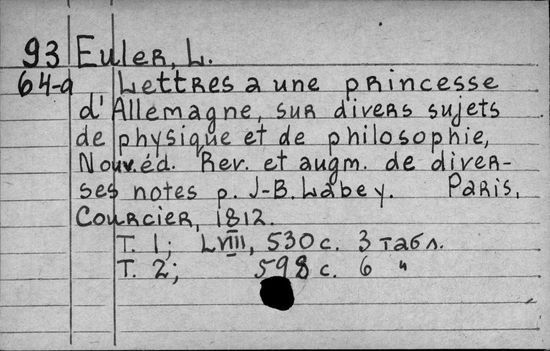 93 Euler, L.
64-a Lettres a une princesse
d'Allemagne, sur divers sujets
de physique et de philosophie,
Nouv. éd. Rev. et augm. de diver-
ses notes p. J-B. Labey. Paris,
Courcier, 1812.
T. 1; LVIII, 530 с. 3 табл.
T. 2; 598 с. 6 "